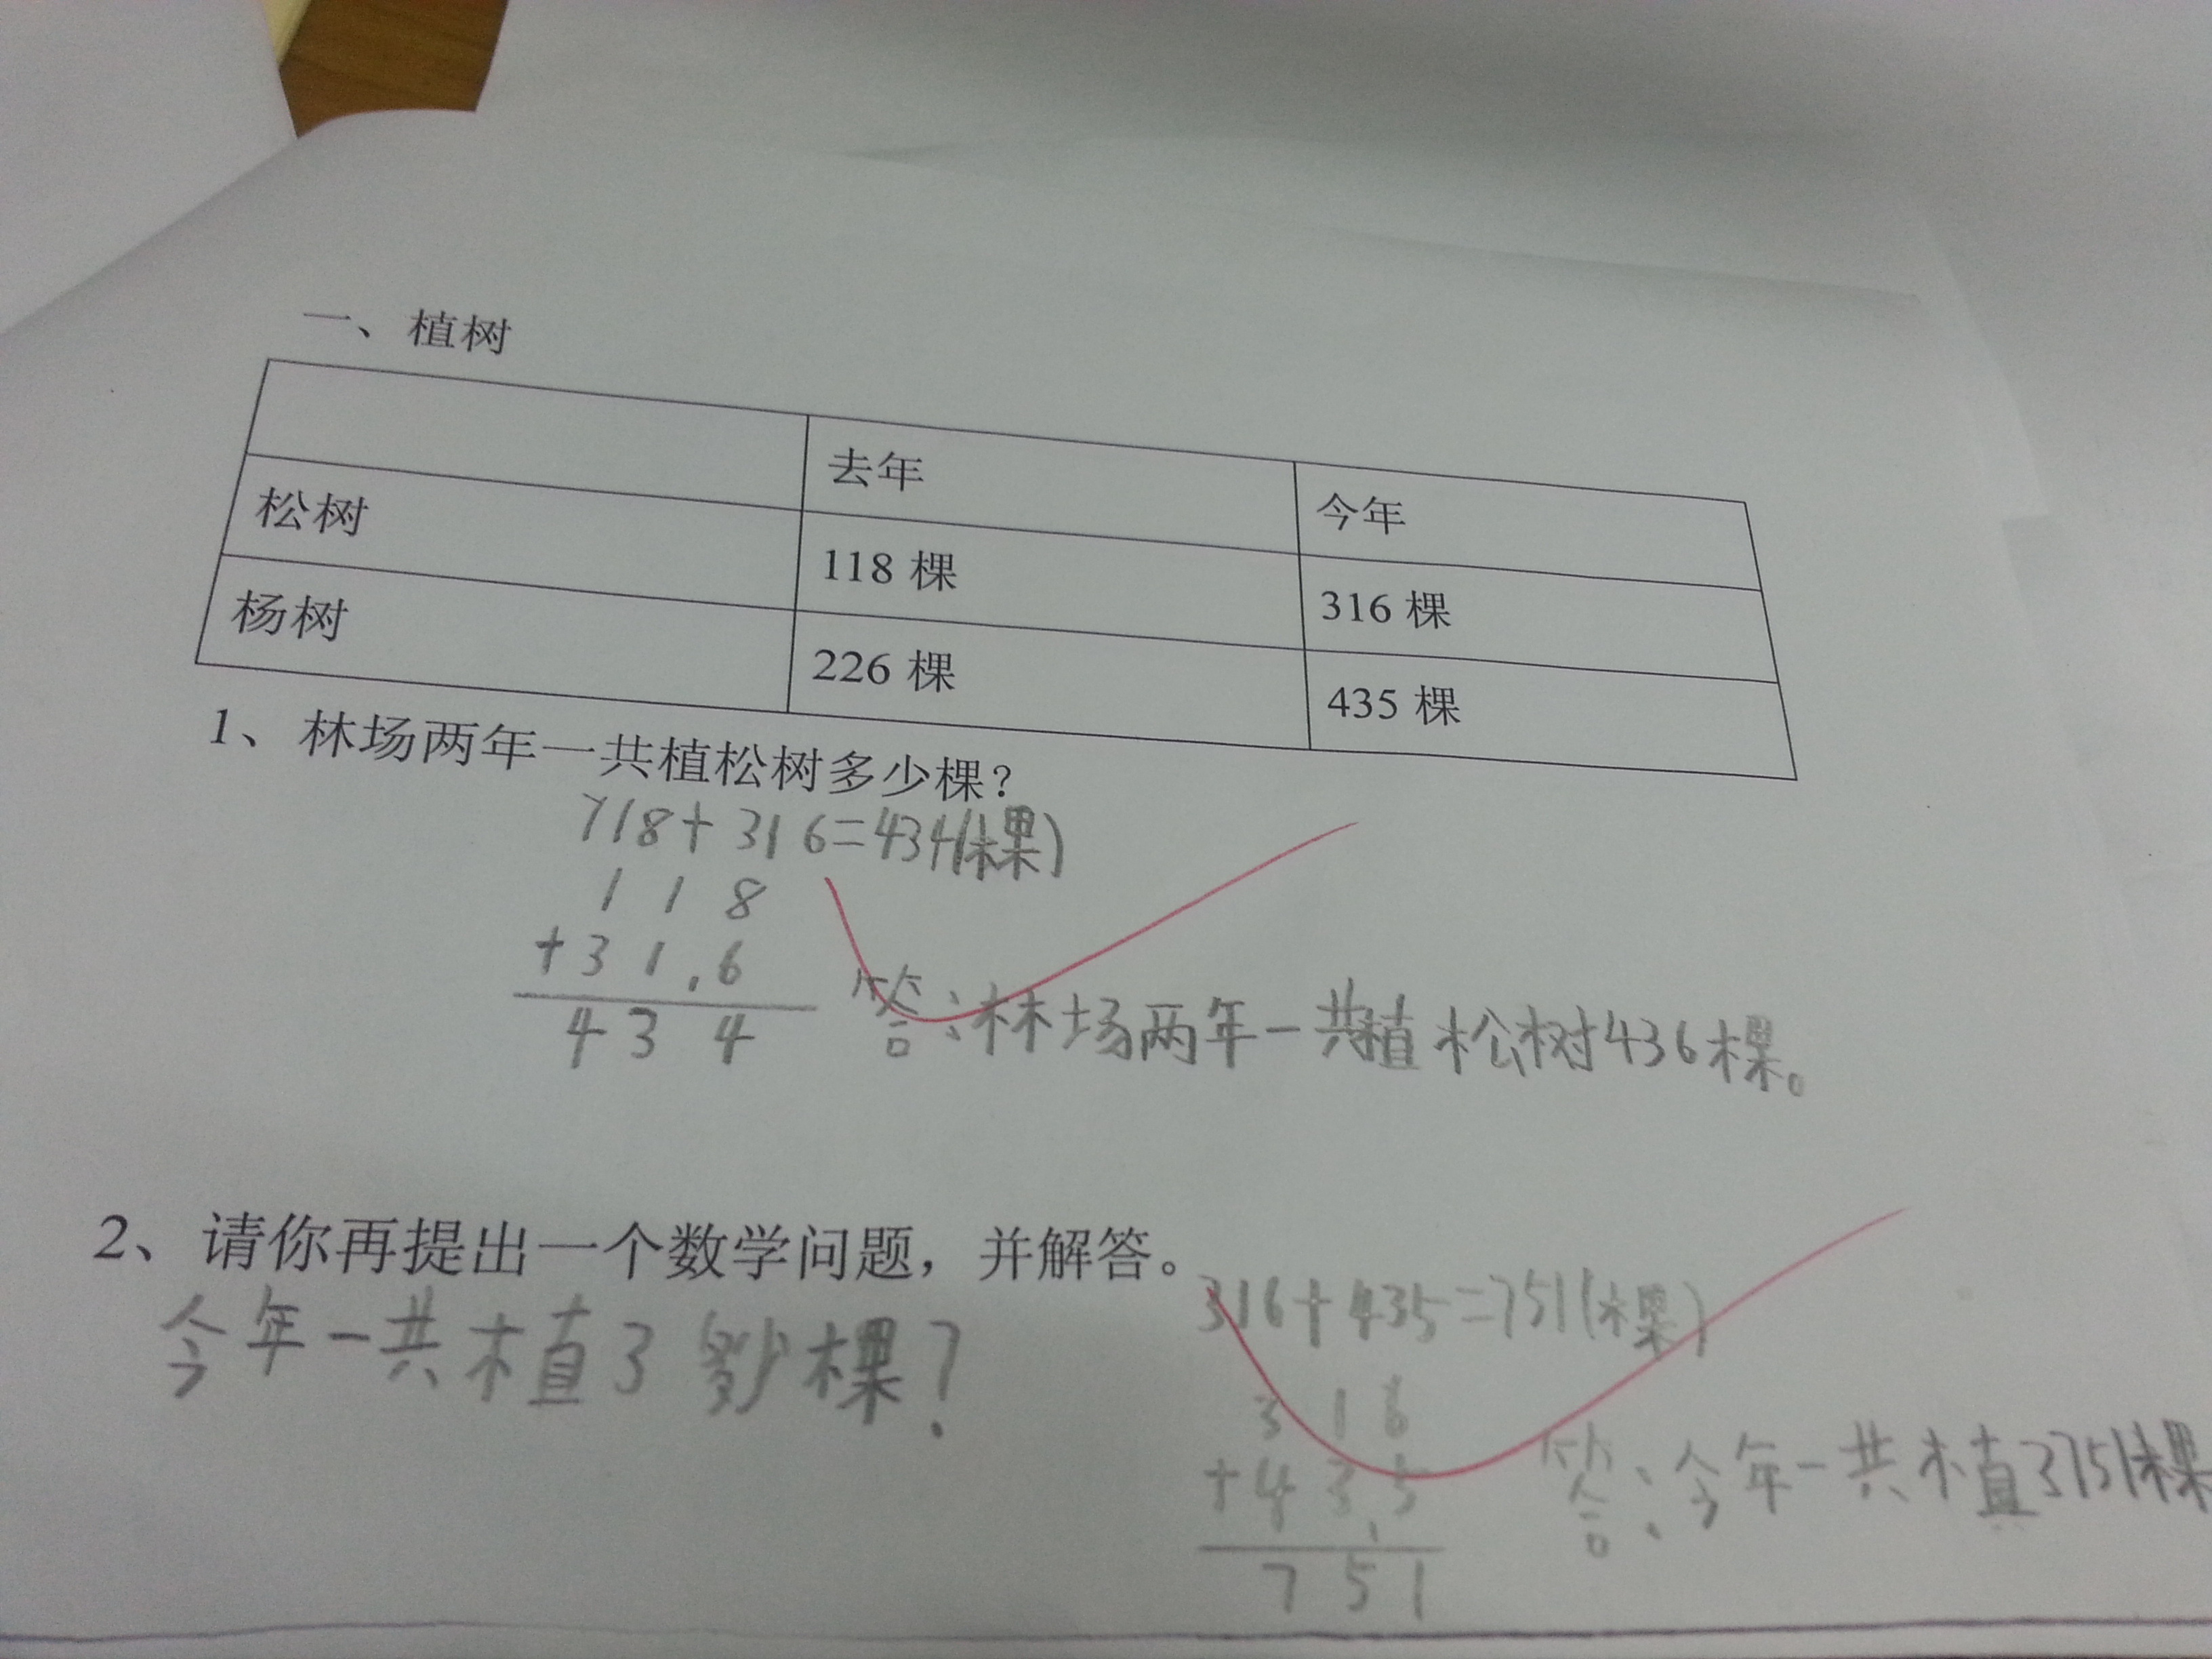 一、植树
去年 今年
松树 118 棵 316 棵
杨树 226 棵 435 棵
1、林场两年一共植松树多少棵？
118+316=434(棵)
1 1 8
+3 1 6
4 3 4
答：林场两年一共植松树436棵。
2、请你再提出一个数学问题，并解答。
今年一共植了多少棵？
316+435=751(棵)
3 1 6
+4 3 5
7 5 1
答：今年一共植了751棵